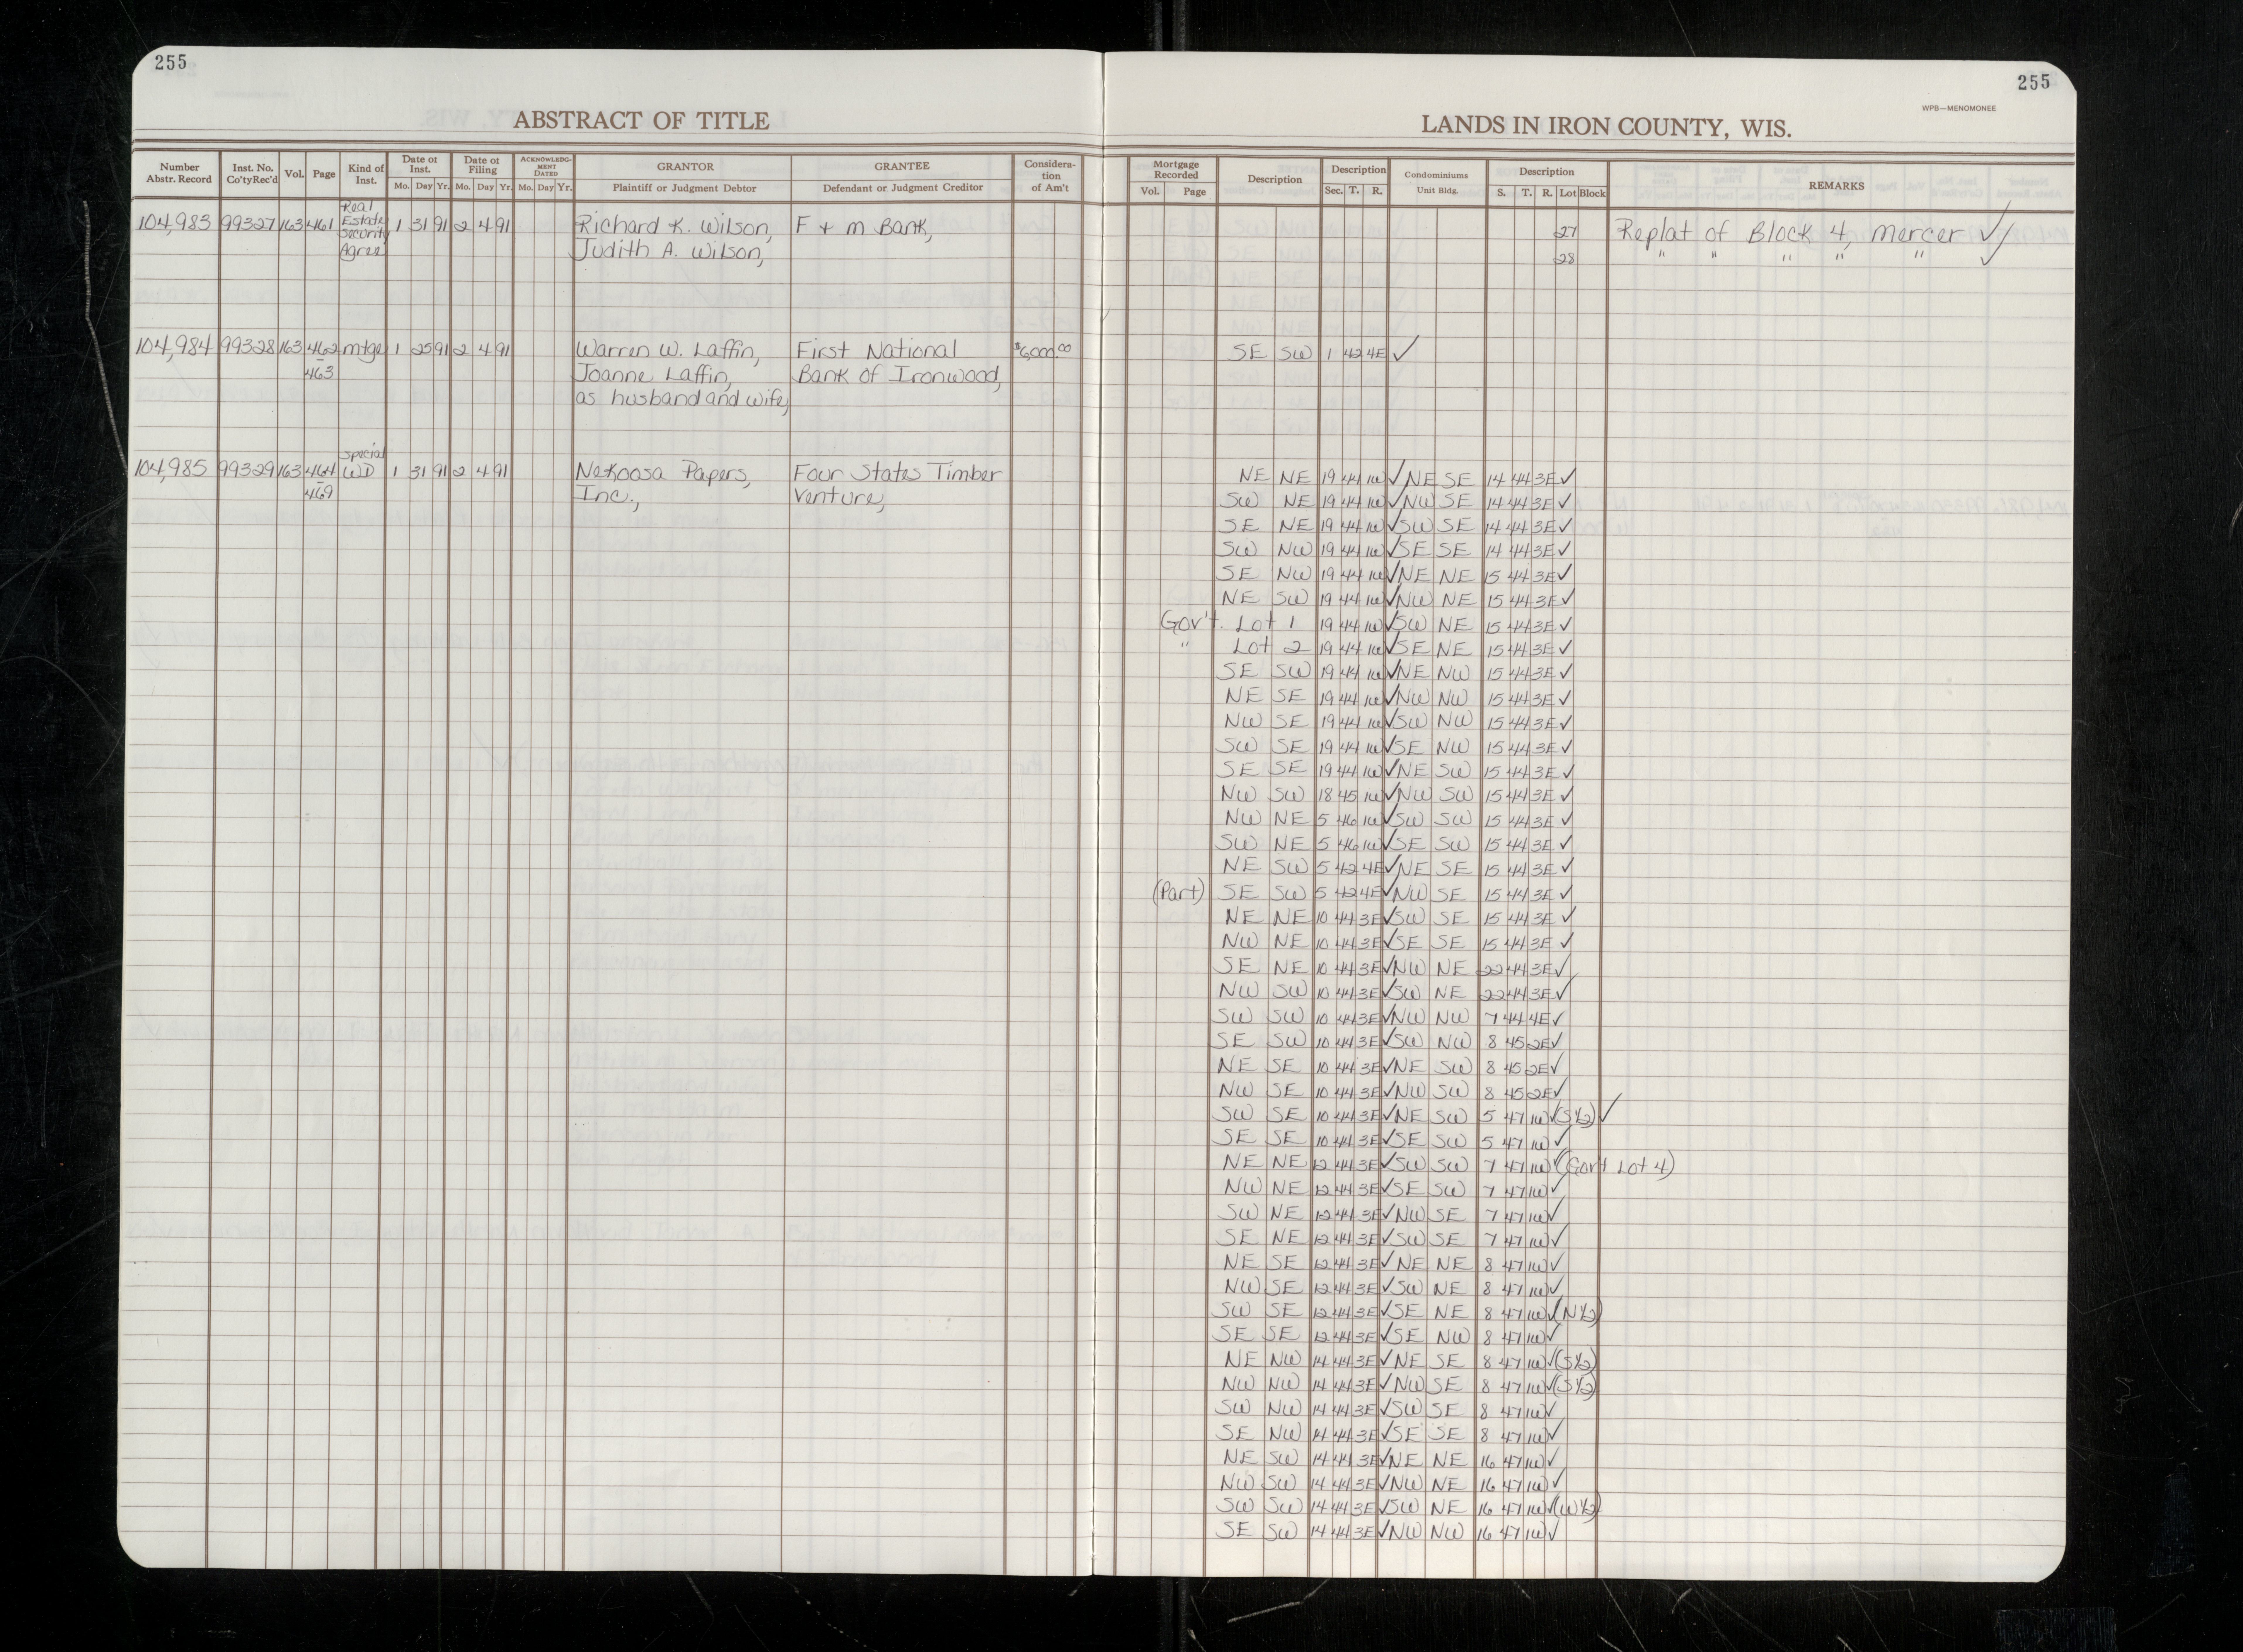 255
255
WPB—MENOMONEE
ABSTRACT OF TITLE
LANDS IN IRON COUNTY, WIS.
Number Abstr. Record | Inst. No. Co'tyRec'd | Vol. | Page | Kind of Inst. | Date of Inst. Mo. Day Yr. | Date of Filing Mo. Day Yr. | ACKNOWLEDGMENT DATED Mo. Day Yr. | GRANTOR Plaintiff or Judgment Debtor | GRANTEE Defendant or Judgment Creditor | Consideration of Am't | Mortgage Recorded Vol. Page | Description | Description Sec. T. R. | Condominiums Unit Bldg. | Description S. T. R. Lot Block | REMARKS
104,983 99327 163 461 Real Estate Security Agree 1 31 91 2 4 91 Richard K. Wilson, F + m Bank, 27 Replat of Block 4, Mercer ✓
Judith A. Wilson, 28 " " " " " ✓
104,984 99328 163 462 mtge 1 25 91 2 4 91 Warren W. Laffin, First National $6,000.00 SE SW 1 42 4E ✓
– 463 Joanne Laffin, Bank of Ironwood,
as husband and wife,
104,985 99329 163 464 Special WD 1 31 91 2 4 91 Nekoosa Papers, Four States Timber NE NE 19 44 1W ✓ NE SE 14 44 3E ✓
– 469 Inc., Venture, SW NE 19 44 1W ✓ NW SE 14 44 3E ✓
SE NE 19 44 1W ✓ SW SE 14 44 3E ✓
SW NW 19 44 1W ✓ SE SE 14 44 3E ✓
SE NW 19 44 1W ✓ NE NE 15 44 3E ✓
NE SW 19 44 1W ✓ NW NE 15 44 3E ✓
Gov't. Lot 1 19 44 1W ✓ SW NE 15 44 3E ✓
" Lot 2 19 44 1W ✓ SE NE 15 44 3E ✓
SE SW 19 44 1W ✓ NE NW 15 44 3E ✓
NE SE 19 44 1W ✓ NW NW 15 44 3E ✓
NW SE 19 44 1W ✓ SW NW 15 44 3E ✓
SW SE 19 44 1W ✓ SE NW 15 44 3E ✓
SE SE 19 44 1W ✓ NE SW 15 44 3E ✓
NW SW 18 45 1W ✓ NW SW 15 44 3E ✓
NW NE 5 46 1W ✓ SW SW 15 44 3E ✓
SW NE 5 46 1W ✓ SE SW 15 44 3E ✓
NE SW 5 42 4E ✓ NE SE 15 44 3E ✓
(Part) SE SW 5 42 4E ✓ NW SE 15 44 3E ✓
NE NE 10 44 3E ✓ SW SE 15 44 3E ✓
NW NE 10 44 3E ✓ SE SE 15 44 3E ✓
SE NE 10 44 3E ✓ NW NE 22 44 3E ✓
NW SW 10 44 3E ✓ SW NE 22 44 3E ✓
SW SW 10 44 3E ✓ NW NW 7 44 4E ✓
SE SW 10 44 3E ✓ SW NW 8 45 2E ✓
NE SE 10 44 3E ✓ NE SW 8 45 2E ✓
NW SE 10 44 3E ✓ NW SW 8 45 2E ✓
SW SE 10 44 3E ✓ NE SW 5 47 1W ✓ (S½) ✓
SE SE 10 44 3E ✓ SE SW 5 47 1W ✓
NE NE 12 44 3E ✓ SW SW 7 47 1W ✓ (Gov't Lot 4)
NW NE 12 44 3E ✓ SE SW 7 47 1W ✓
SW NE 12 44 3E ✓ NW SE 7 47 1W ✓
SE NE 12 44 3E ✓ SW SE 7 47 1W ✓
NE SE 12 44 3E ✓ NE NE 8 47 1W ✓
NW SE 12 44 3E ✓ SW NE 8 47 1W ✓
SW SE 12 44 3E ✓ SE NE 8 47 1W ✓ (N½)
SE SE 12 44 3E ✓ SE NW 8 47 1W ✓
NE NW 14 44 3E ✓ NE SE 8 47 1W ✓ (S½)
NW NW 14 44 3E ✓ NW SE 8 47 1W ✓ (S½)
SW NW 14 44 3E ✓ SW SE 8 47 1W ✓
SE NW 14 44 3E ✓ SE SE 8 47 1W ✓
NE SW 14 44 3E ✓ NE NE 16 47 1W ✓
NW SW 14 44 3E ✓ NW NE 16 47 1W ✓
SW SW 14 44 3E ✓ SW NE 16 47 1W ✓ (W½)
SE SW 14 44 3E ✓ NW NW 16 47 1W ✓